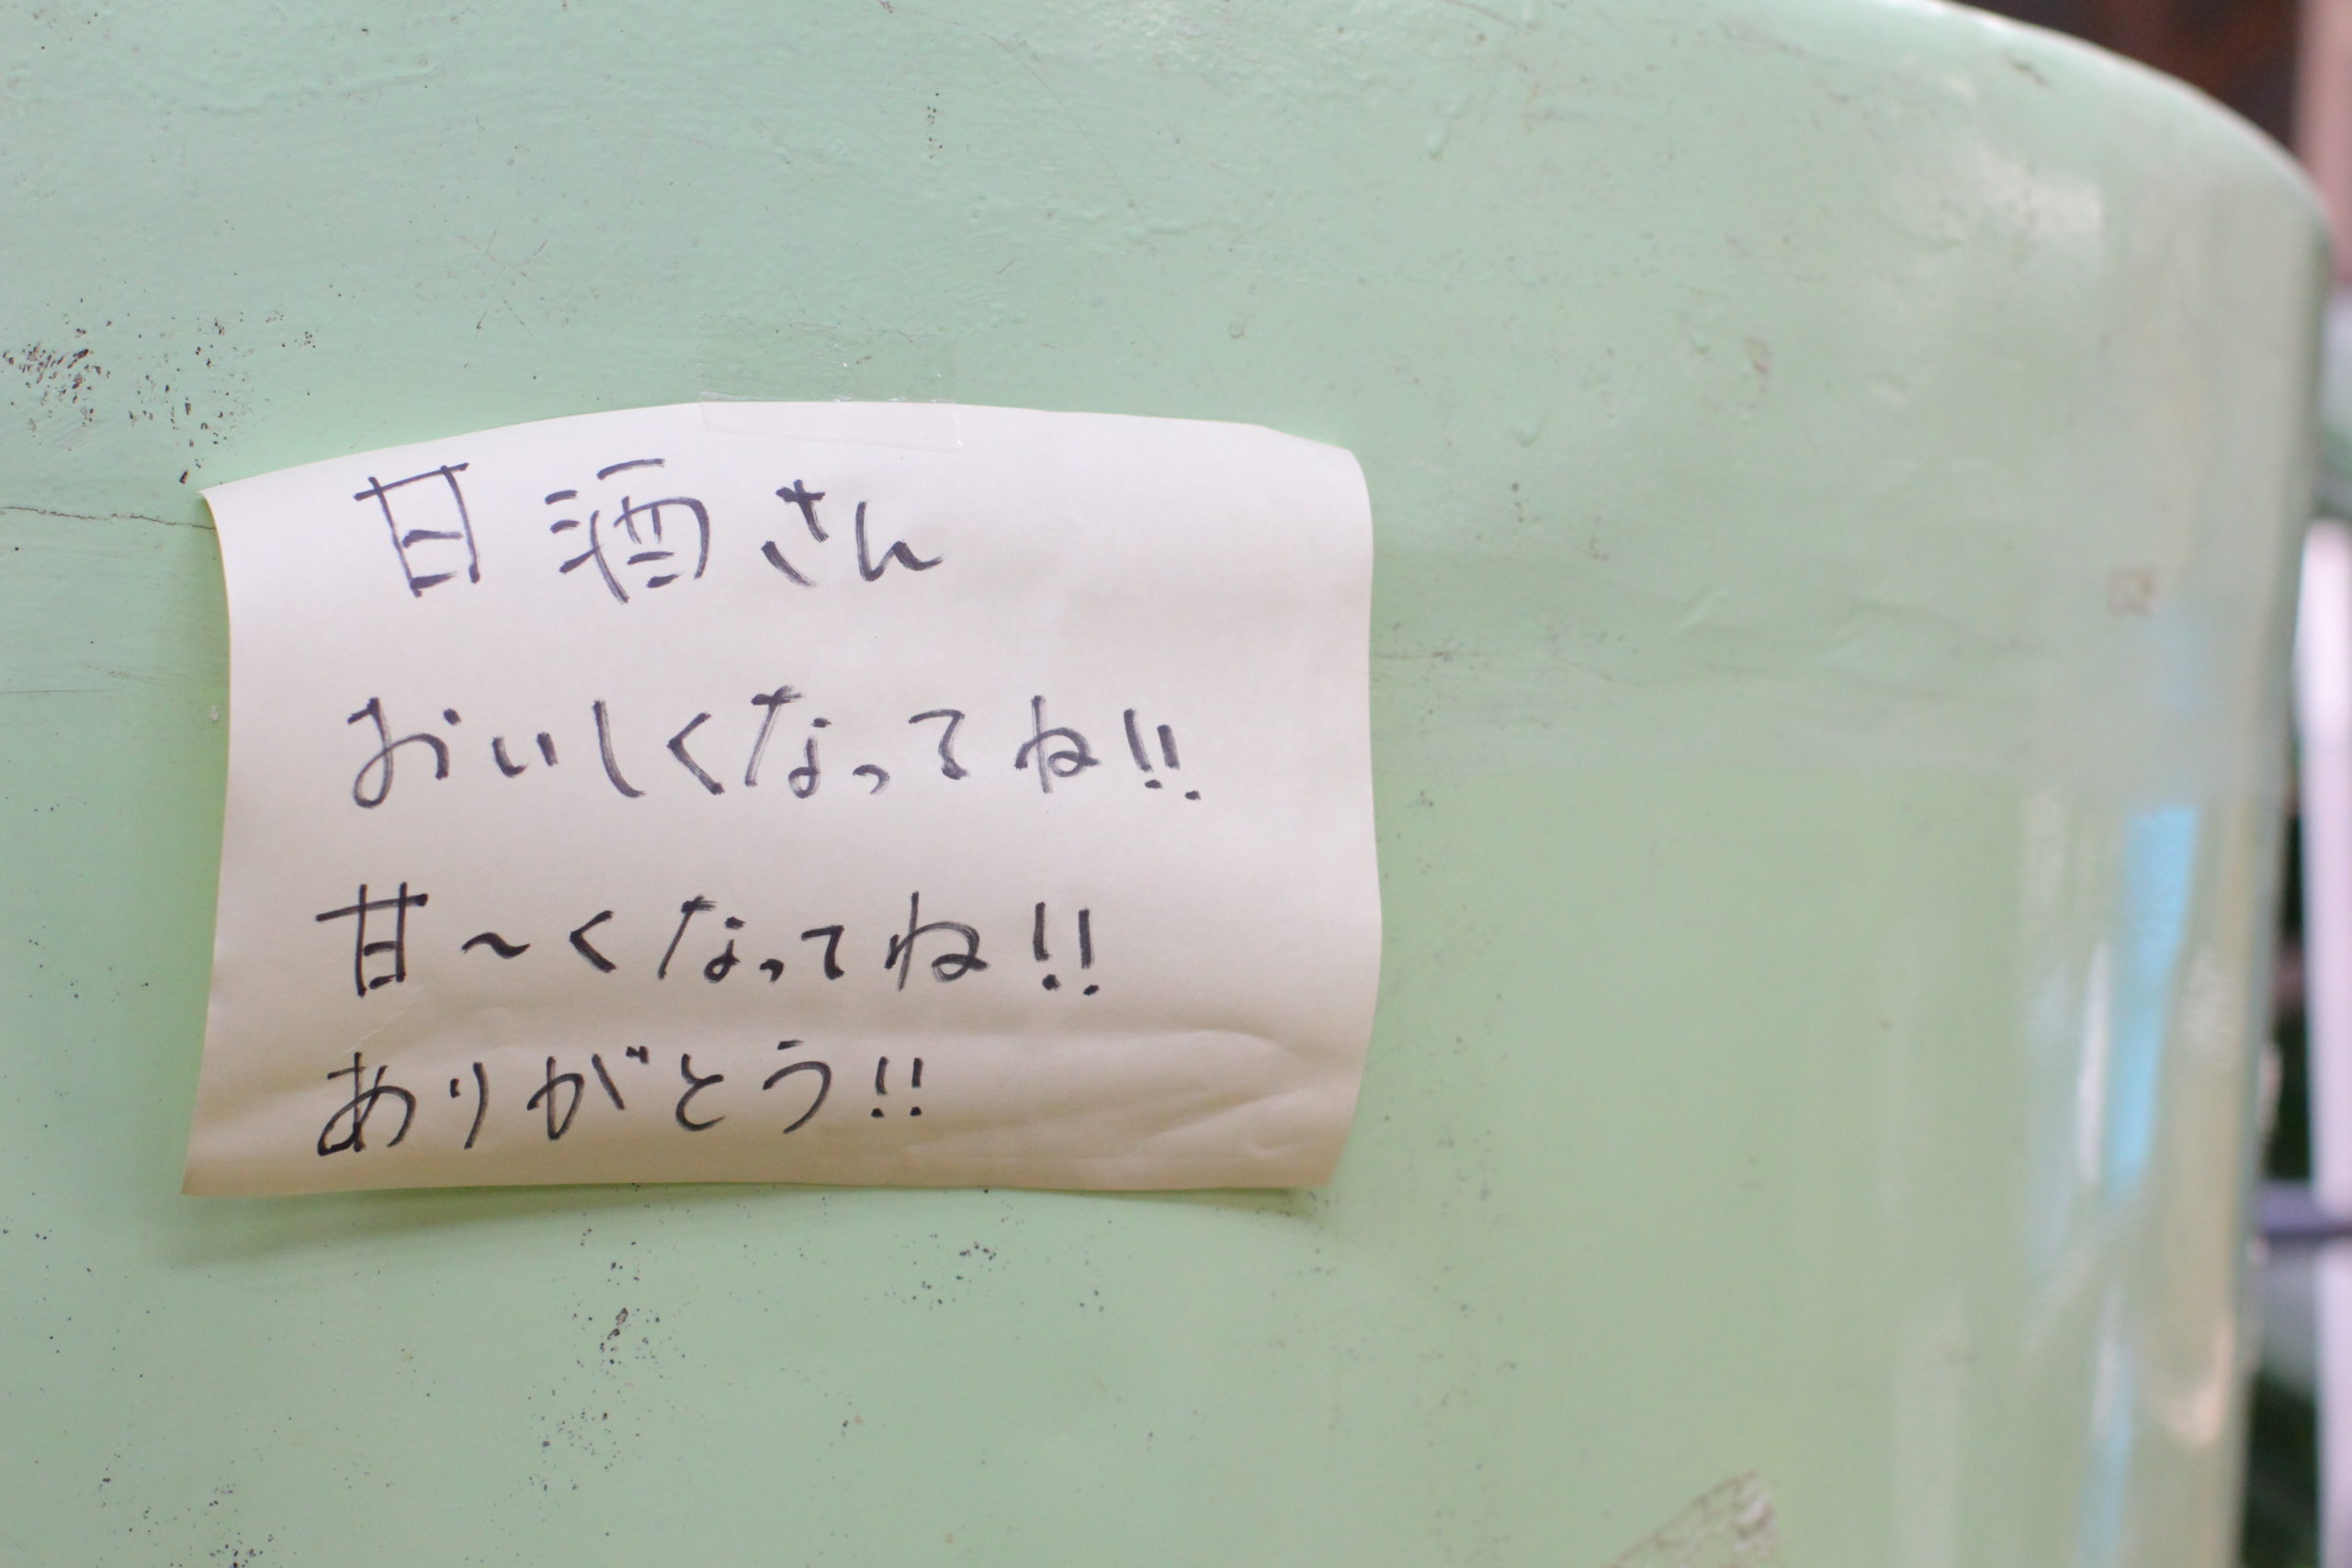 甘酒さん
おいしくなってね!!
甘〜くなってね!!
ありがとう!!